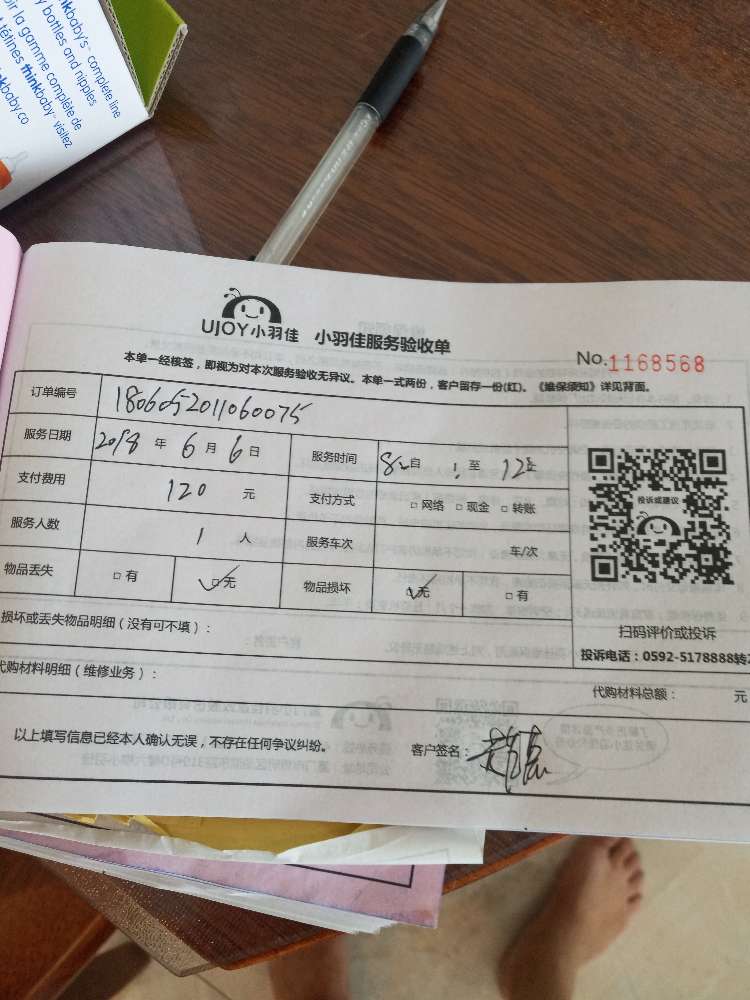 nkbaby's™ complete line
y bottles and nipples
oir la gamme complète de
t tétines thinkbaby™ visitez
kbaby.co
UJOY小羽佳 小羽佳服务验收单
No.1168568
本单一经核签，即视为对本次服务验收无异议。本单一式两份，客户留存一份(红)。《维保须知》详见背面。
订单编号 180605201106 0075
服务日期 2018 年 6 月 6 日 服务时间 自 至 12
支付费用 120 元 支付方式 □网络 □现金 □转账
服务人数 1 人 服务车次 车/次
物品丢失 □有 □无 物品损坏 □无 □有
投诉或建议
扫码评价或投诉
投诉电话：0592-5178888转
损坏或丢失物品明细（没有可不填）：
代购材料明细（维修业务）：
代购材料总额： 元
以上填写信息已经本人确认无误，不存在任何争议纠纷。 客户签名：